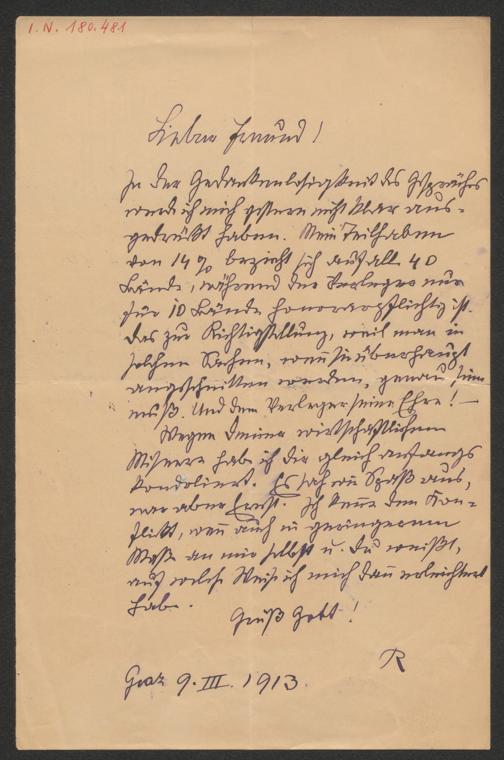 I. N. 180.481
Lieber Freund!
In der Gedankenlosigkeit des Gespräches
werde ich mich gestern nicht klar aus-
gedrückt haben. Mein Teilhaben
von 14 % bezieht sich auf alle 40
Bände, während der Verleger nur
für 10 Bände honorarpflichtig ist.
Das zur Richtigstellung, weil man in
solchen Sachen, wenn sie überhaupt
angeschnitten werden, genau sein
muß. Und dem Verleger seine Ehre! —
Wegen Deiner wirtschaftlichen
Misere hab ich Dir gleich anfangs
kondoliert. Es sah wie Spaß aus,
war aber Ernst. Ich kenne den Kon-
flikt, wenn auch in geringerem
Maße an mir selbst u. Du weißt,
auf welche Weise ich mich dann erleichtert
habe.
Grüß Gott!
R
Graz 9. III. 1913.